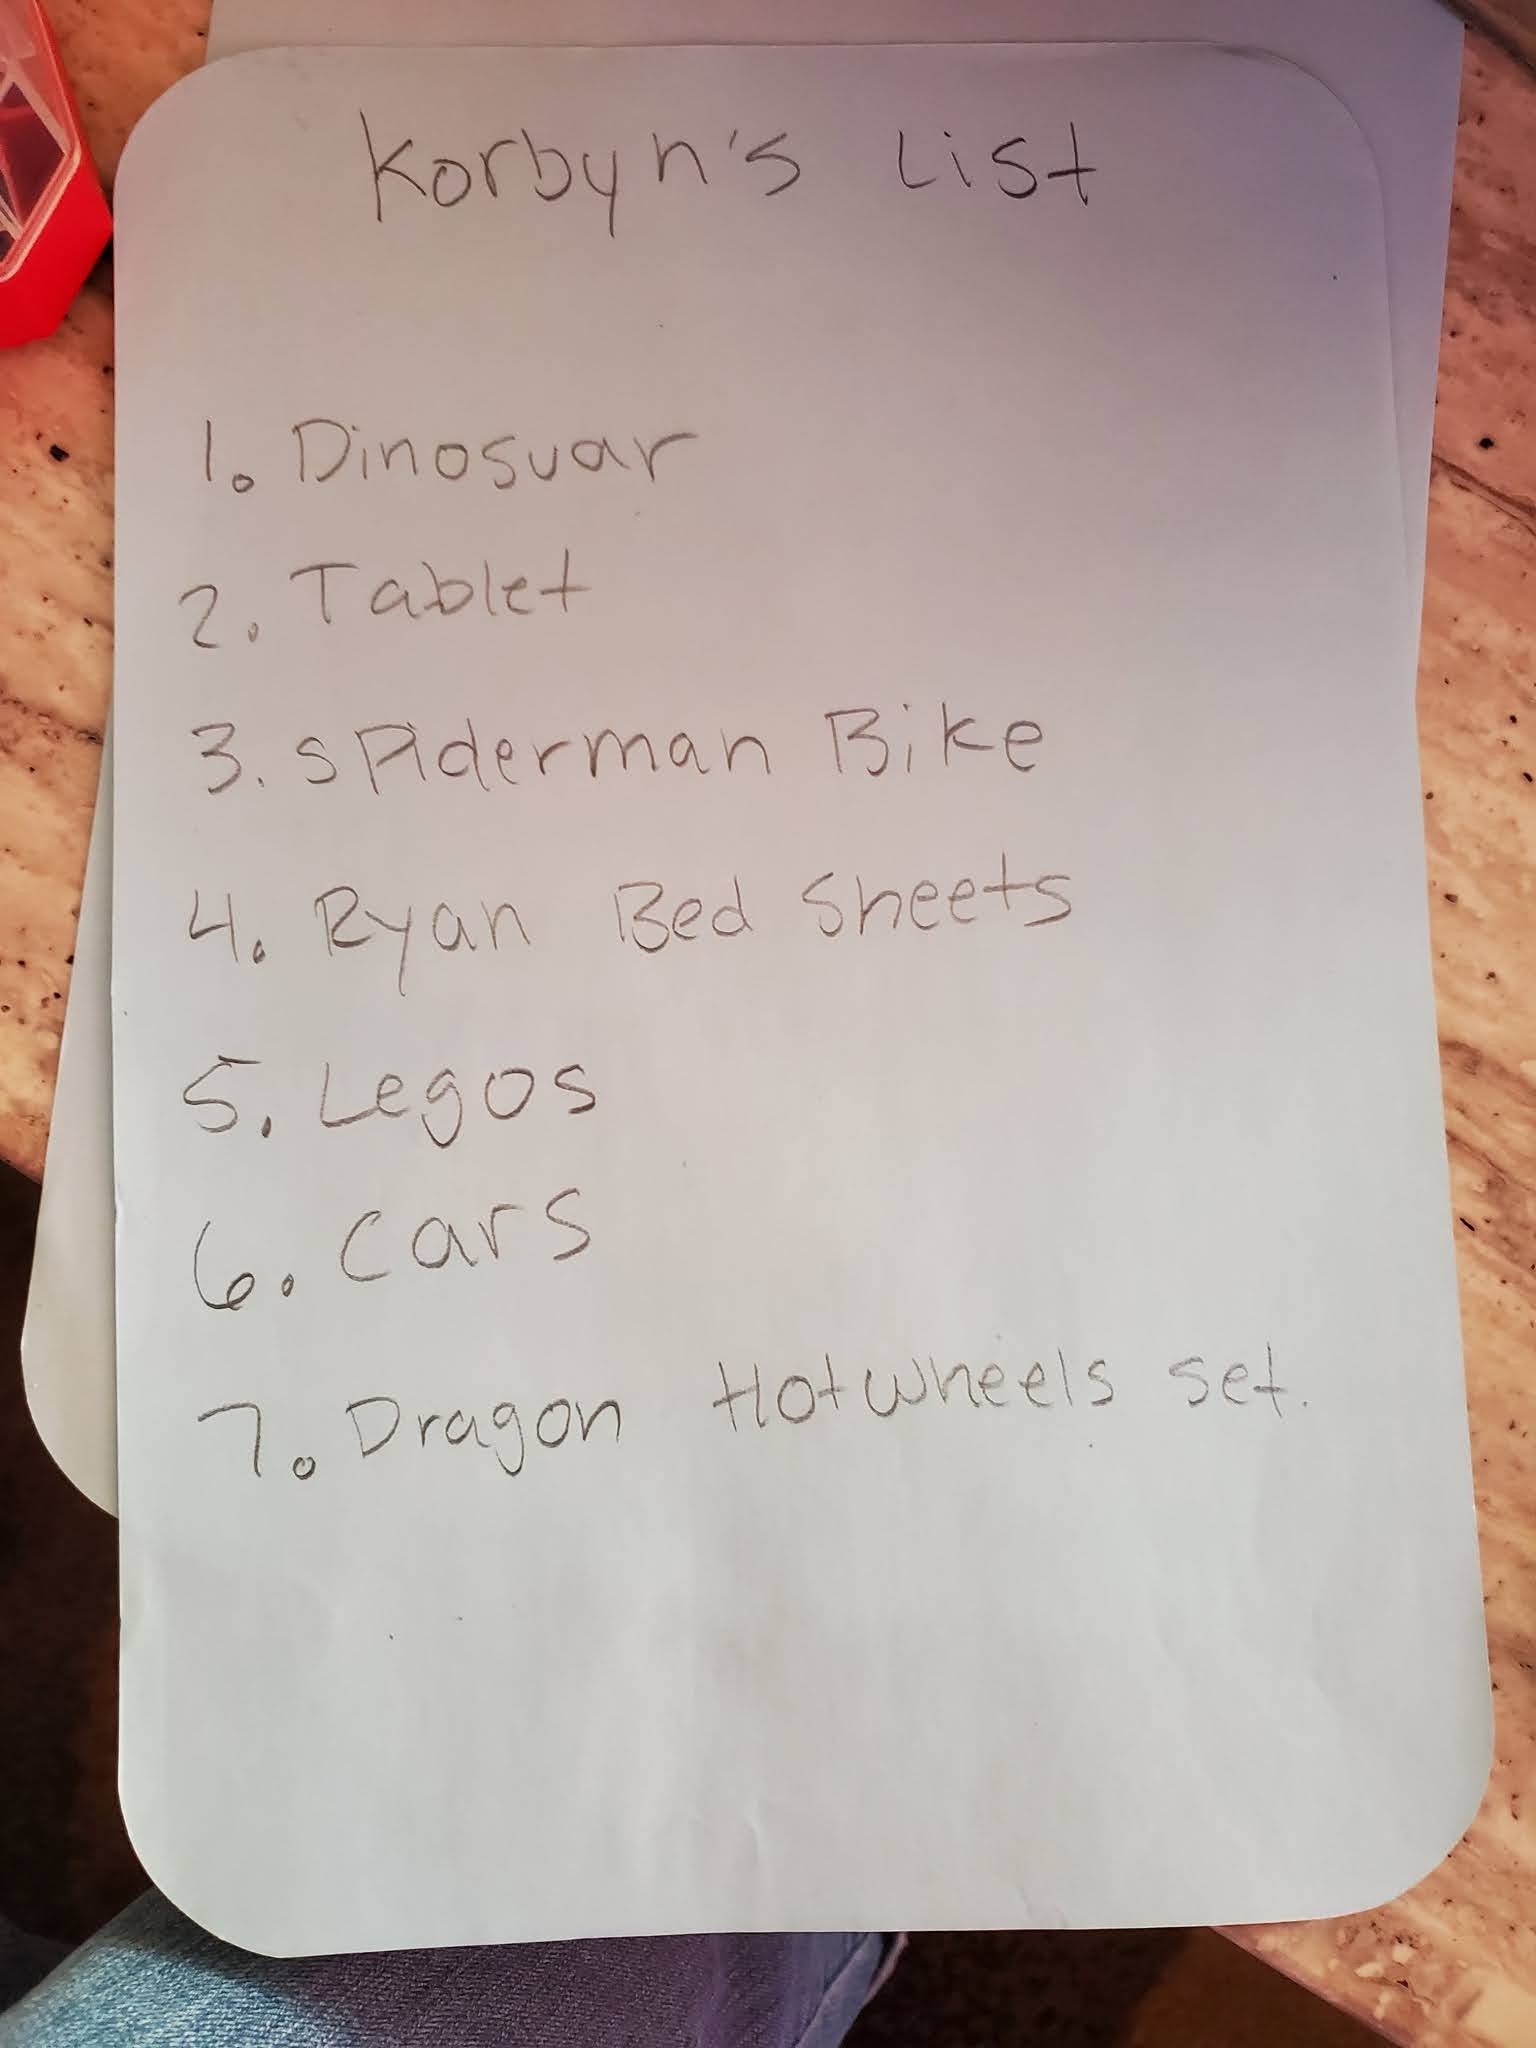 Korbyn's List
1. Dinosuar
2. Tablet
3. Spiderman Bike
4. Ryan Bed Sheets
5. Legos
6. Cars
7. Dragon Hotwheels set.